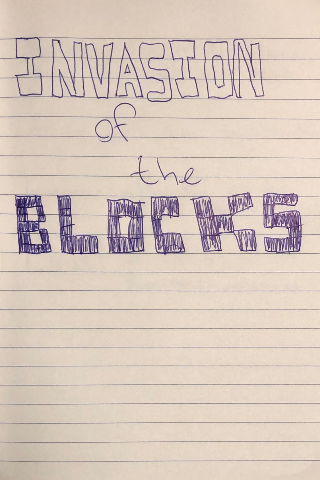 INVASION
of
the
BLOCKS